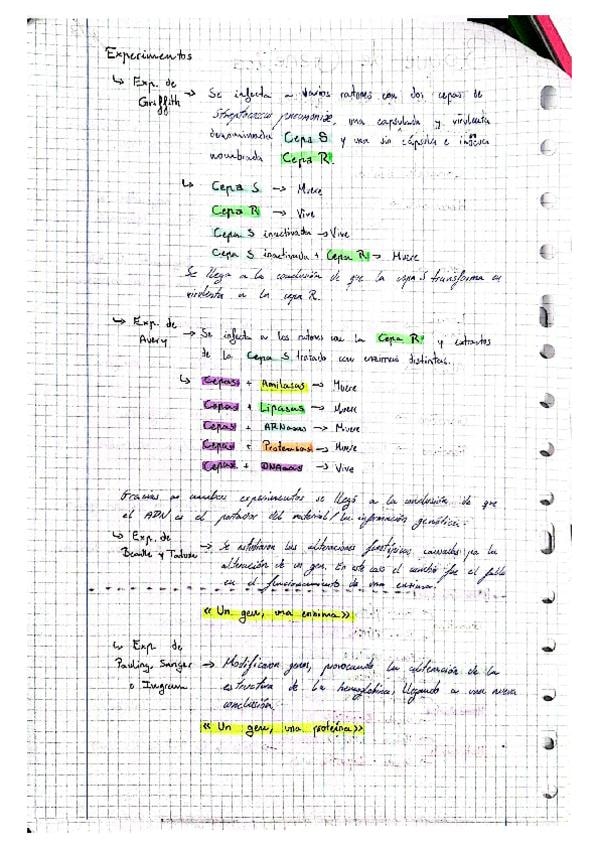 Experimentos
↳ Exp. de Griffith → Se infecta a varios ratones con dos cepas de
Streptococcus pneumoniae, una capsulada y virulenta
denominada Cepa S y una sin cápsula e inocua
nombrada Cepa R.
↳ Cepa S → Muere
Cepa R → Vive
Cepa S inactivada → Vive
Cepa S inactivada + Cepa R → Muere
Se llega a la conclusión de que la cepa S transforma en
virulenta a la cepa R.
↳ Exp. de Avery → Se infecta a los ratones con la Cepa R y extractos
de la Cepa S tratado con enzimas distintas.
↳ Cepas + Amilasas → Muere
Cepas + Lipasas → Muere
Cepas + ARNasas → Muere
Cepas + Proteasas → Muere
Cepas + DNAasas → Vive
Gracias a ambos experimentos se llegó a la conclusión de que
el ADN es el portador del material/la información genética.
↳ Exp. de Beadle y Tatum → Se estudiaron las alteraciones fenotípicas causadas por la
alteración de un gen. En este caso el cambio fue el fallo
en el funcionamiento de una enzima.
« Un gen, una enzima »
↳ Exp. de Pauling, Sanger e Ingram → Modificaron genes, provocando la alteración de la
estructura de la hemoglobina, llegando a una nueva
conclusión.
« Un gen, una proteína »